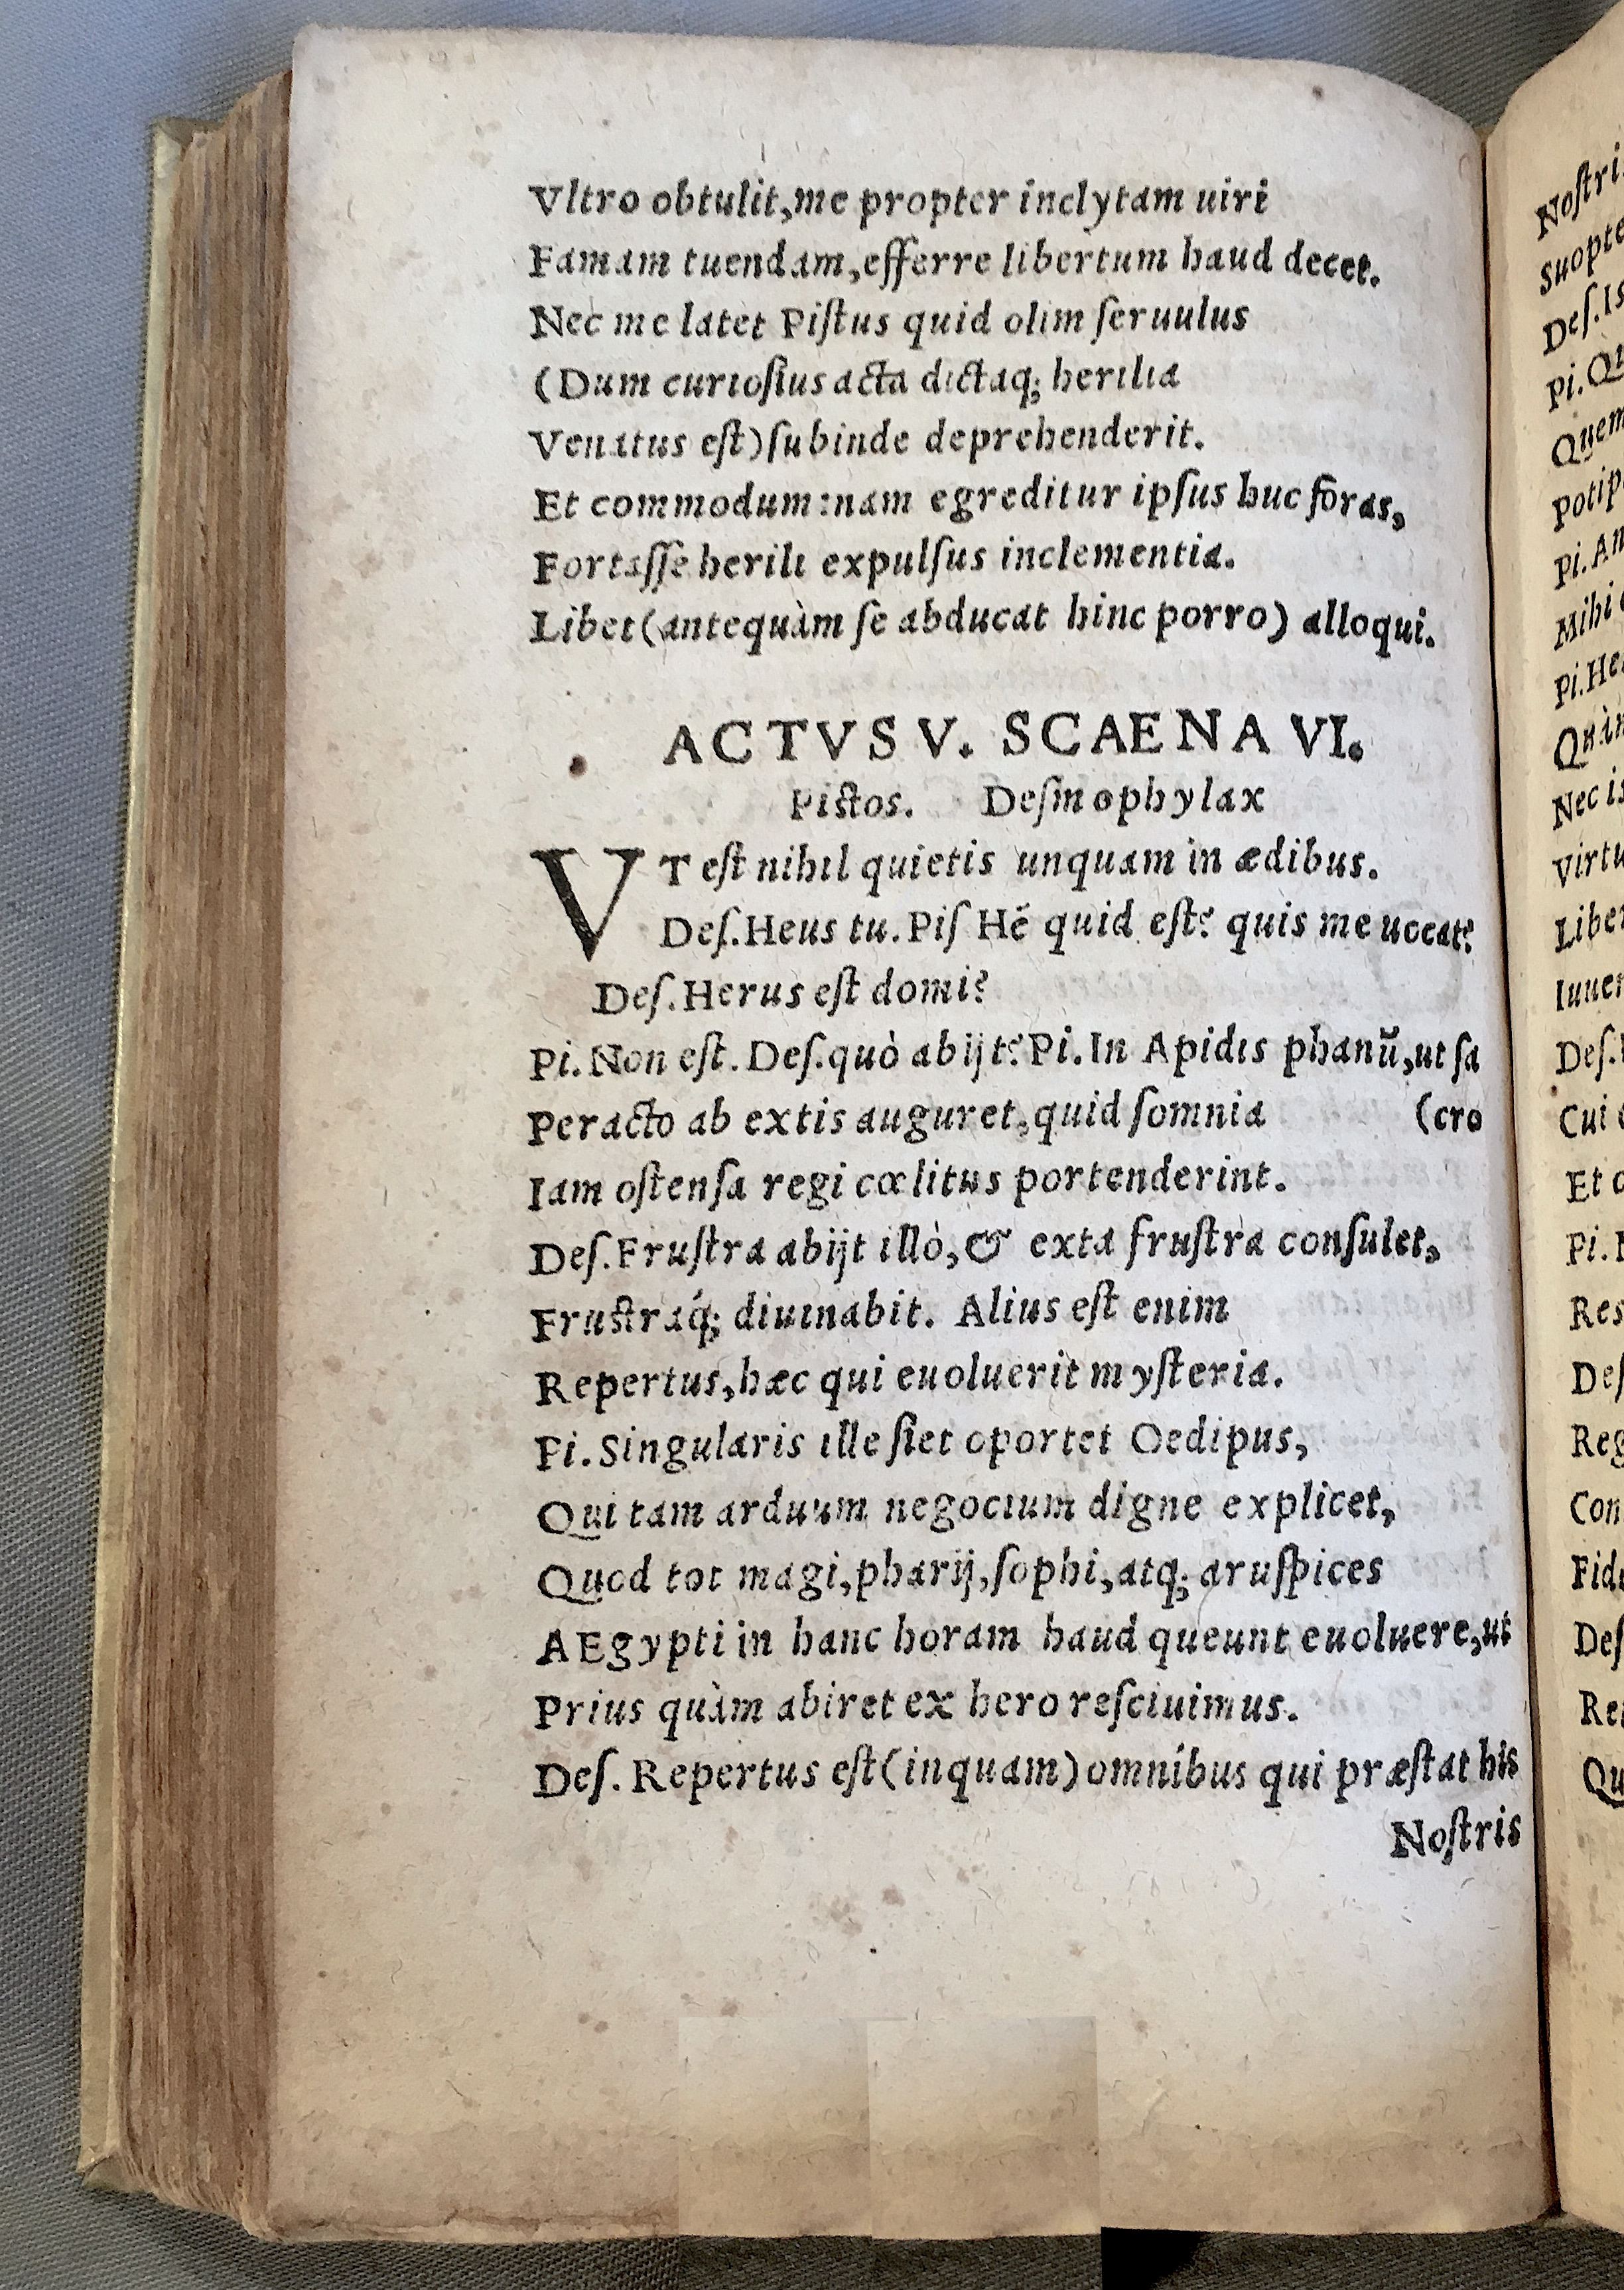 Vltro obtulit,me propter inclytam uiri
Famam tuendam,efferre libertum haud decet.
Nec me latet Piſtus quid olim ſeruulus
(Dum curioſius acta dictaq; herilia
Venatus eſt)ſubinde deprehenderit.
Et commodum:nam egreditur ipſus huc foras,
Fortaſſe herili expulſus inclementia.
Libet(antequàm ſe abducat hinc porro) alloqui.
ACTVS V. SCAENA VI.
Piſtos. Deſmophylax
VT eſt nihil quietis unquam in ædibus.
Deſ.Heus tu.Piſ Hē quid eſt? quis me uocat?
Deſ.Herus eſt domi?
Pi.Non eſt.Deſ.quò abijt?Pi.In Apidis phanū,ut ſa
Peracto ab extis auguret,quid ſomnia (cro
Iam oſtenſa regi cœlitus portenderint.
Deſ.Fruſtra abijt illò,& exta fruſtra conſulet,
Fruſtraq́; diuinabit. Alius eſt enim
Repertus,hæc qui euoluerit myſteria.
Pi.Singularis ille ſiet oportet Oedipus,
Qui tam arduum negocium digne explicet,
Quod tot magi,pharij,ſophi,atq; aruſpices
AEgypti in hanc horam haud queunt euoluere,ut
Prius quàm abiret ex hero reſciuimus.
Deſ. Repertus eſt(inquam)omnibus qui præſtat his
Noſtris
Noſtri
Suopte
Deſ.Is
Pi.Qu
Quem
Potip
Pi.An
Mihi
Pi.He
Quàm
Nec is
Virtu
Liber
Iuuen
Deſ.
Cui
Et
Pi.
Res
Deſ
Reg
Con
Fid
Deſ
Re
Qu